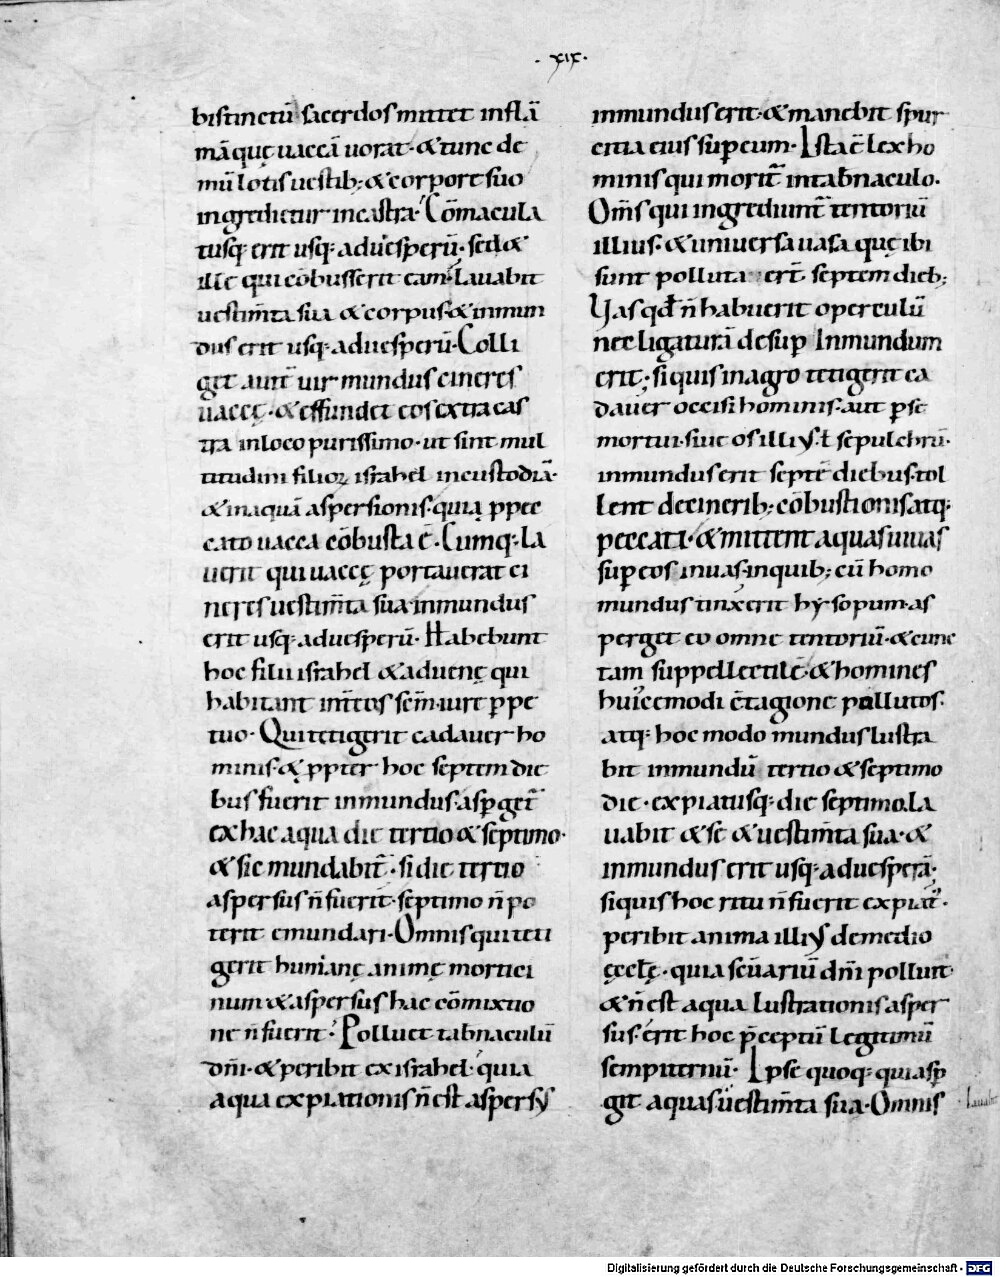 · xıx·
bis tinctū sacerdos mittet inflā
mā quę uaccā uorat· & tunc de
mū lotis uestib; & corpore suo
ingredietur in castra· Cōmacula
tusq; erit usq; ad uesperū· sed &
ille qui cōbusserit eam· lauabit
uestim̄ta sua & corpus· & inmun
dus erit usq; ad uesperū· Colli
get aut̄ uir mundus cineres
uaccę· & effundet eos extra cas
tra in loco purissimo· ut sint mul
titudini filioꝝ israhel in custodiā·
& in aquā aspersionis· quia ꝓ pec
cato uacca cōbusta ē· Cumq; la
uerit qui uaccę portauerat ci
neres uestim̄ta sua· inmundus
erit usq; ad uesperū· Habebunt
hoc filii israhel & aduenę qui
habitant int̄ eos sc̄m· iure ꝑpe
tuo· Qui tetigerit cadauer ho
minis· & ꝓpter hoc septem die
bus fuerit inmundus· asꝑget̄
ex hac aqua die tertio & septimo·
& sic mundabit̄· si die tertio
aspersus n̄ fuerit· septimo n̄ po
terit emundari· Omnis qui teti
gerit humanę animę mortici
num & aspersus hac cōmixtio
ne n̄ fuerit· Polluet tab̄naculū
dn̄i· & peribit ex israhel· quia
aqua expiationis n̄ est aspersꝰ
inmundus erit· & manebit spur
citia eius suꝑ eum· Ista ē lex ho
minis qui morit̄ in tab̄naculo·
Om̄s qui ingrediunt̄ tentoriū
illius· & uniuersa uasa quę ibi
sunt polluta er̄t septem dieb;
Uas qd̄ n̄ habuerit operculū
nec ligaturā desuꝑ Inmundum
erit; si quis in agro tetigerit ca
dauer occisi hominis· aut ꝑ se
mortui· siue os illiꝰ· ł sepulchrū·
inmundus erit septē diebus· tol
lent de cinerib; cōbustionis atq;
peccati· & mittent aquas uiuas
suꝑ eos in uas· in quib; cū homo
mundus tinxerit hysopum· as
perget eo omne tentoriū· & cunc
tam suppellectilē· & homines
huiꝰcemodi c̄tagione pollutos·
atq; hoc modo mundus lustra
bit inmundū tertio & septimo
die· expiatusq; die septimo· la
uabit & se & uestim̄ta sua· &
inmundus erit usq; ad uesperā·
si quis hoc ritu n̄ fuerit expiat̉·
peribit anima illiꝰ de medio
ęcclę· quia sc̄uariū dn̄i polluit·
& n̄ est aqua lustrationis asper
sus· erit hoc p̄ceptū legitimū
sempiternū· Ipse quoq; qui asꝑ
git aquas uestim̄ta sua· Omnis
lauabit
Digitalisierung gefördert durch die Deutsche Forschungsgemeinschaft - DFG